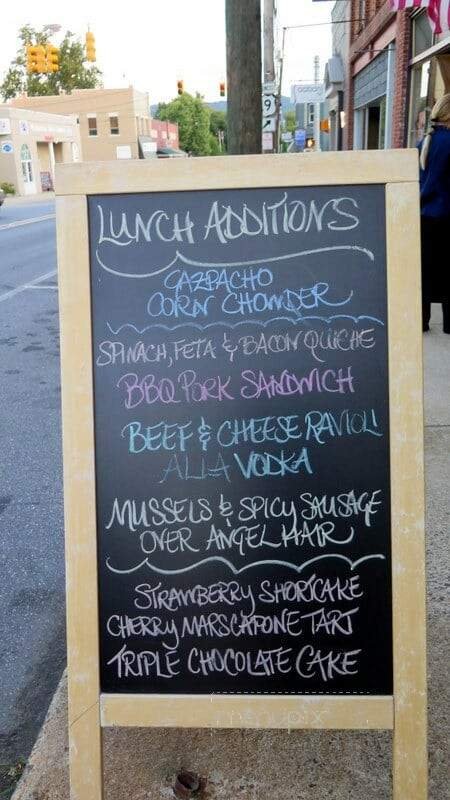 9
LUNCH ADDITIONS
GAZPACHO
CORN CHOWDER
SPINACH, FETA & BACON QUICHE
BBQ PORK SANDWICH
BEEF & CHEESE RAVIOLI
ALLA VODKA
MUSSELS & SPICY SAUSAGE
OVER ANGEL HAIR
STRAWBERRY SHORTCAKE
CHERRY MARSCAPONE TART
TRIPLE CHOCOLATE CAKE
menupix